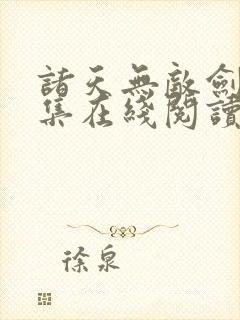 諸天無敵劍
集在綫閱讀
徐泉